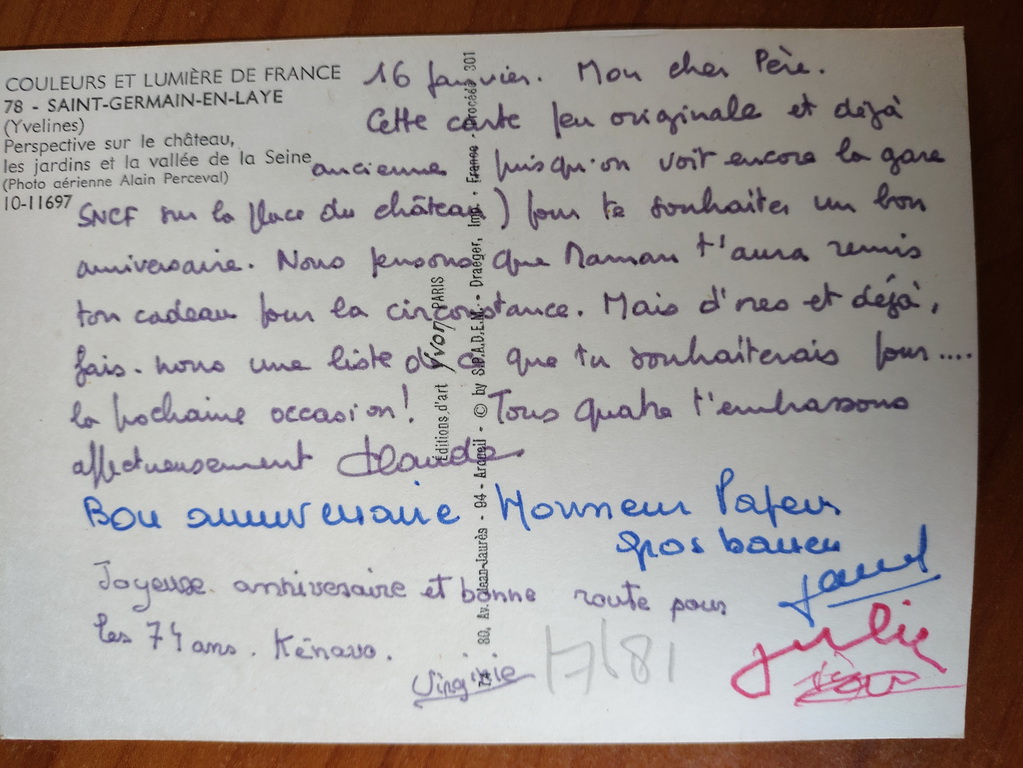 COULEURS ET LUMIÈRE DE FRANCE
78 - SAINT-GERMAIN-EN-LAYE
(Yvelines)
Perspective sur le château,
les jardins et la vallée de la Seine
(Photo aérienne Alain Perceval)
10-11697
16 Janvier. Mon cher Père.
Cette carte peu originale et déjà
ancienne puisqu'on voit encore la gare
SNCF sur la place du château) pour te souhaiter un bon
anniversaire. Nous pensons que Maman t'aura remis
ton cadeau pour la circonstance. Mais d'ores et déjà,
fais-nous une liste de ce que tu souhaiterais pour....
la prochaine occasion! Tous quatre t'embrassons
affectueusement Claude
Bon anniversaire Monsieur
gros
Joyeuse anniversaire et bonne route pour
les 74 ans. Kénavo.
Virginie
Julie
Éditions d'art Yvon PARIS
80, Av. Jean-Jaurès - 94 - Arcueil - © by S.P.A.D.E.M. - Draeger, Imp. - France - Procédé 301